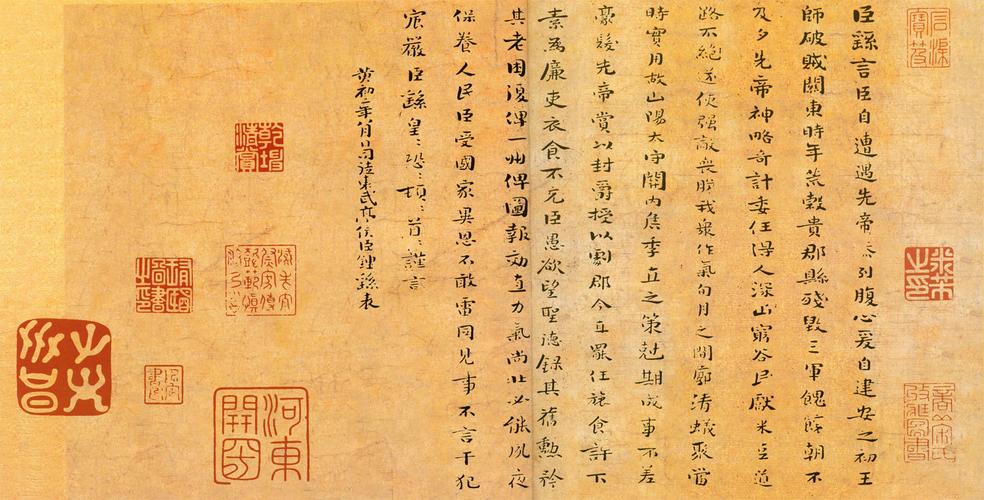 臣繇言臣自遭遇先帝忝列腹心爰自建安之初王
師破賊關東時年荒穀貴郡縣殘毀三軍餽饟朝不
及夕先帝神略奇計委任得人深山窮谷民獻米豆道
路不絕遂使强敵喪膽我衆作氣旬月之間廓清蟻聚當
時實用故山陽太守關內侯季直之策尅期成事不差
豪髮先帝賞以封爵授以劇郡今直罷任旅食許下
素爲廉吏衣食不充臣愚欲望聖德錄其舊勳矜
其老困復俾一州俾圖報効直力氣尚壯必能夙夜
保養人民臣受國家異恩不敢雷同見事不言干犯
宸嚴臣繇皇皇恐恐頓頓首首謹言
黃初二年八月日司徒東武亭侯臣鍾繇表
乾坤清賞
河東開國